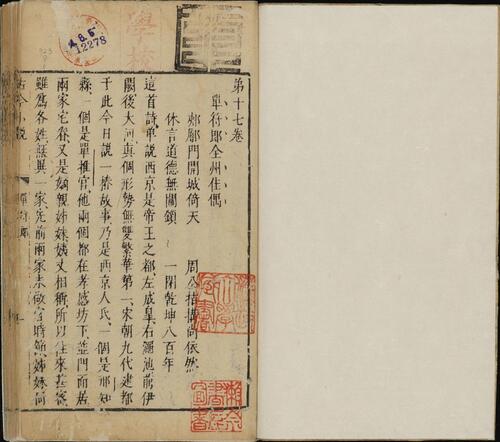 第十七卷
單符郎全州佳偶
郟鄏門開城倚天　周公拮搆尚依然
休言道德無關鎖　一閉乾坤八百年
這首詩单說西京是帝王之都左成皐右澠池前伊
闕後大河真個形勢無雙繁華第一宋朝九代建都
于此今日說一樁故事乃是西京人氏一個是邢知
縣一個是單推官他兩個都在孝感坊下並門而居
兩家宅眷又是嫡親姊妹姨丈相稱所以往來甚密
雖爲各姓無異一家先前兩家未做官時節姊妹同
古今小說
單符郎
一
12278